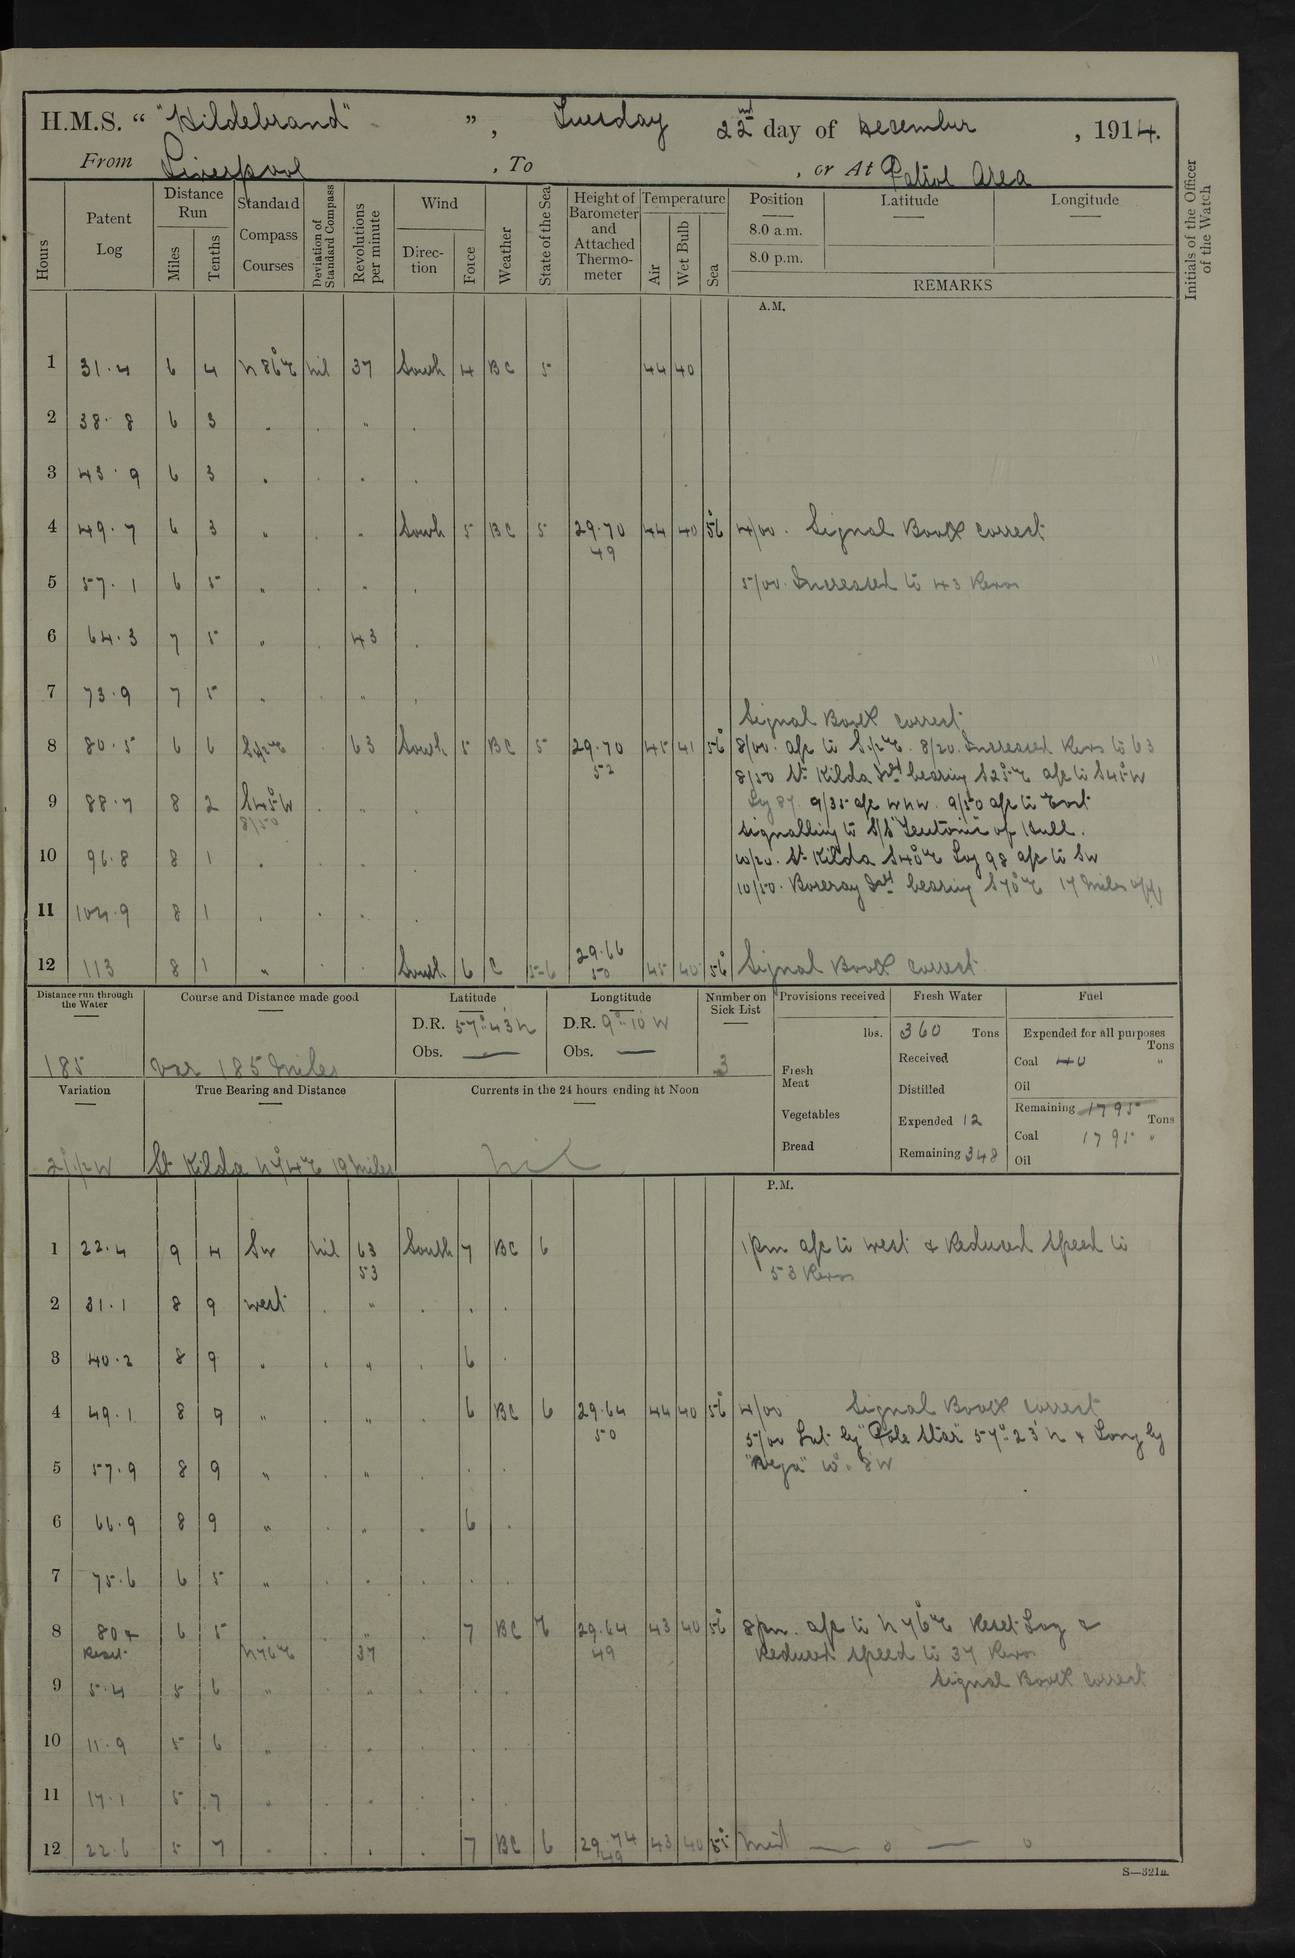 H.M.S. " "Hildebrand" ", Tuesday 22nd day of December , 1914.
From Liverpool , To , or At Patrol Area
Hours Patent Log Distance Run Miles Tenths Standard Compass Courses Deviation of Standard Compass Revolutions per minute Wind Direction Force Weather State of the Sea Height of Barometer and Attached Thermometer Temperature Air Wet Bulb Sea Position 8.0 a.m. 8.0 p.m. Latitude Longitude Initials of the Officer of the Watch
REMARKS
A.M.
1 31.4 6 4 N 86° E nil 37 South 4 BC 5 44 40
2 38.8 6 3 . . " .
3 43.9 6 3 . . . .
4 49.7 6 3 " . . South 5 BC 5 29.70 44 40 56° 4/00. Signal Book correct
49
5 57.1 6 5 " . . . 5/00. Increased to 43 Revns
6 64.3 7 5 " . 43 .
7 73.9 7 5 . . " .
Signal Book correct
8 80.5 6 6 S½E . 63 South 5 BC 5 29.70 45 41 56° 8/00. a/c to S½E. 8/20. Increased Revns to 63
52 8/50 St Kilda Isld bearing S25°E a/c to S45°W
9 88.7 8 2 S45°W . " . Log 87. 9/35 a/c WNW. 9/50 a/c to East
8/50 signalling to S/S "Teutonic" of Hull.
10 96.8 8 1 . . . . 10/20. St Kilda S40°E Log 98 a/c to SW
10/50. Boreray Isld bearing S70°E 17 miles off
11 104.9 8 1 . . . .
12 113 8 1 " . . South 6 C 5-6 29.66 45 40 56° Signal Book correct
50
Distance run through the Water Course and Distance made good Latitude Longtitude Number on Sick List Provisions received Fresh Water Fuel
D.R. 57° 43' N D.R. 9° 10' W lbs. 360 Tons Expended for all purposes
Obs. — Obs. — Received Coal 40 Tons "
185 Var 185 miles 3 Fresh Meat Distilled Oil
Variation True Bearing and Distance Currents in the 24 hours ending at Noon Vegetables Expended 12 Remaining 1795 Tons
Coal 1795 "
21½W St Kilda N74°E 19 miles nil Bread Remaining 348 Oil
P.M.
1 22.4 9 4 SW nil 63 South 7 BC 6 1 pm a/c to West & Reduced speed to
53 53 Revns
2 31.1 8 9 west . " . . .
3 40.2 8 9 " . " . 6 .
4 49.1 8 9 " . " . 6 BC 6 29.64 44 40 56° 4/00 Signal Book correct
50 5/00 Lat by "Pole Star" 57° 23' N & Long by
5 57.9 8 9 " . " . . . "Vega" 10° 8 W
6 66.9 8 9 " . " . 6 .
7 75.6 6 5 " . . . . .
8 80 & 6 5 . . " . 7 BC 7 29.64 43 40 56° 8 pm. a/c to N 76° E Reset Log &
Reset N76E 37 49 Reduced speed to 37 Revns
9 5.4 5 6 " . " . . . Signal Book correct
10 11.9 5 6 " . . . . .
11 17.1 5 7 " . . . . .
12 22.6 5 7 . . . . 7 BC 6 29.74 43 40 55° Mid — o — o
49
S—321a.